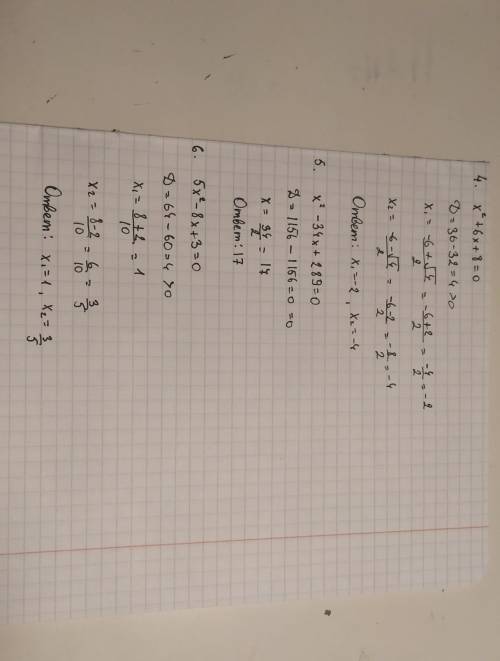 4. x² + 6x + 8 = 0
D = 36 - 32 = 4 > 0
x₁ = (-6 + √4)/2 = (-6 + 2)/2 = -4/2 = -2
x₂ = (-6 - √4)/2 = (-6 - 2)/2 = -8/2 = -4
Ответ: x₁ = -2, x₂ = -4
5. x² - 34x + 289 = 0
D = 1156 - 1156 = 0 = 0
x = 34/2 = 17
Ответ: 17
6. 5x² - 8x + 3 = 0
D = 64 - 60 = 4 > 0
x₁ = (8 + 2)/10 = 1
x₂ = (8 - 2)/10 = 6/10 = 3/5
Ответ: x₁ = 1, x₂ = 3/5